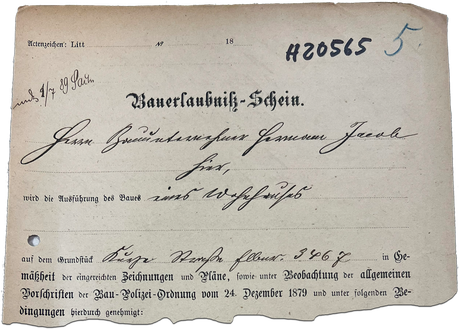 Actenzeichen: Litt № 18
A20565 5.
1/7 89
Bauerlaubniß-Schein.
Herrn Bauunternehmer Herman Jacob
hier,
wird die Ausführung des Baues eines Wohnhauses
auf dem Grundstück Kurze Straße Flbnr. 3467 in Ge-
mäßheit der eingereichten Zeichnungen und Pläne, sowie unter Beobachtung der allgemeinen
Vorschriften der Bau-Polizei-Ordnung vom 24. Dezember 1879 und unter folgenden Be-
dingungen hierdurch genehmigt: